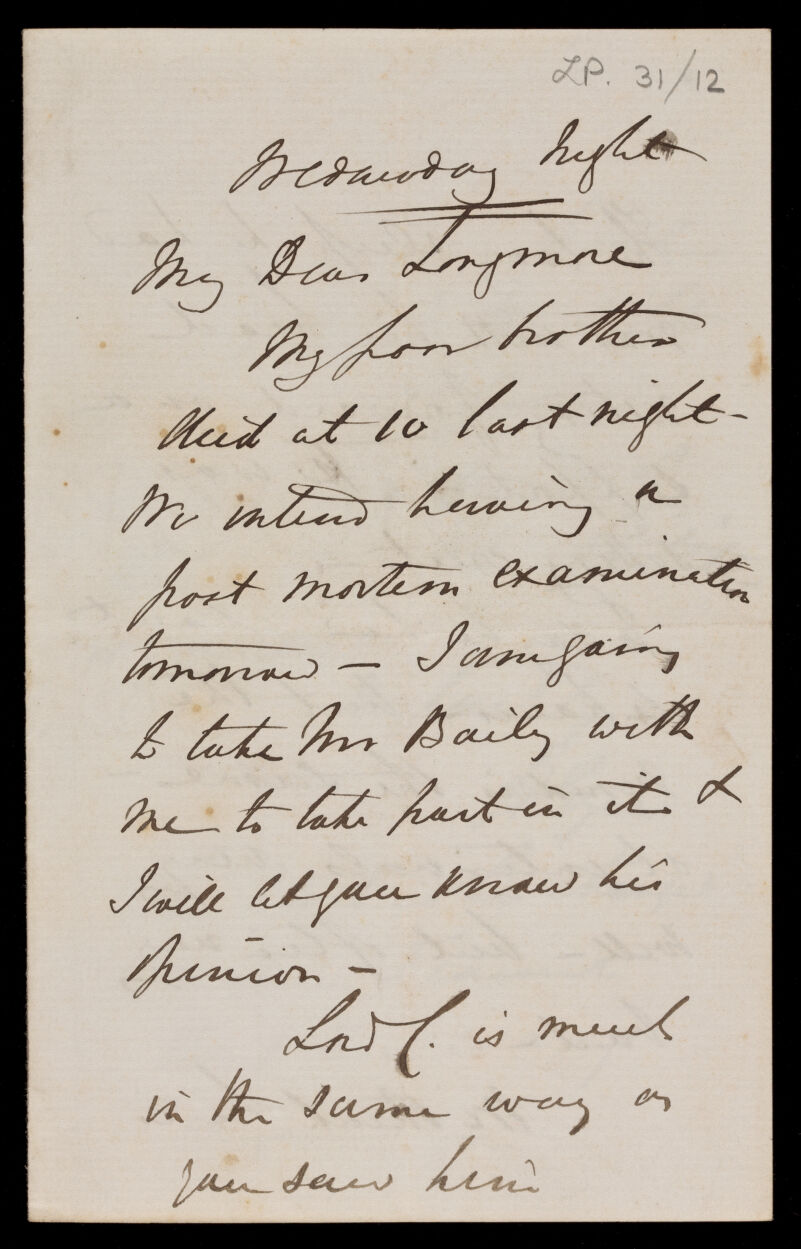 LP. 31/12
Wednesday Night
My Dear Longmore
My poor brother
died at 10 last night -
We intend having a
post mortem examination
tomorrow - I am going
to take Mr Baily with
me to take part in it &
I will let you know his
opinion -
Lord C. is much
in the same way as
you saw him